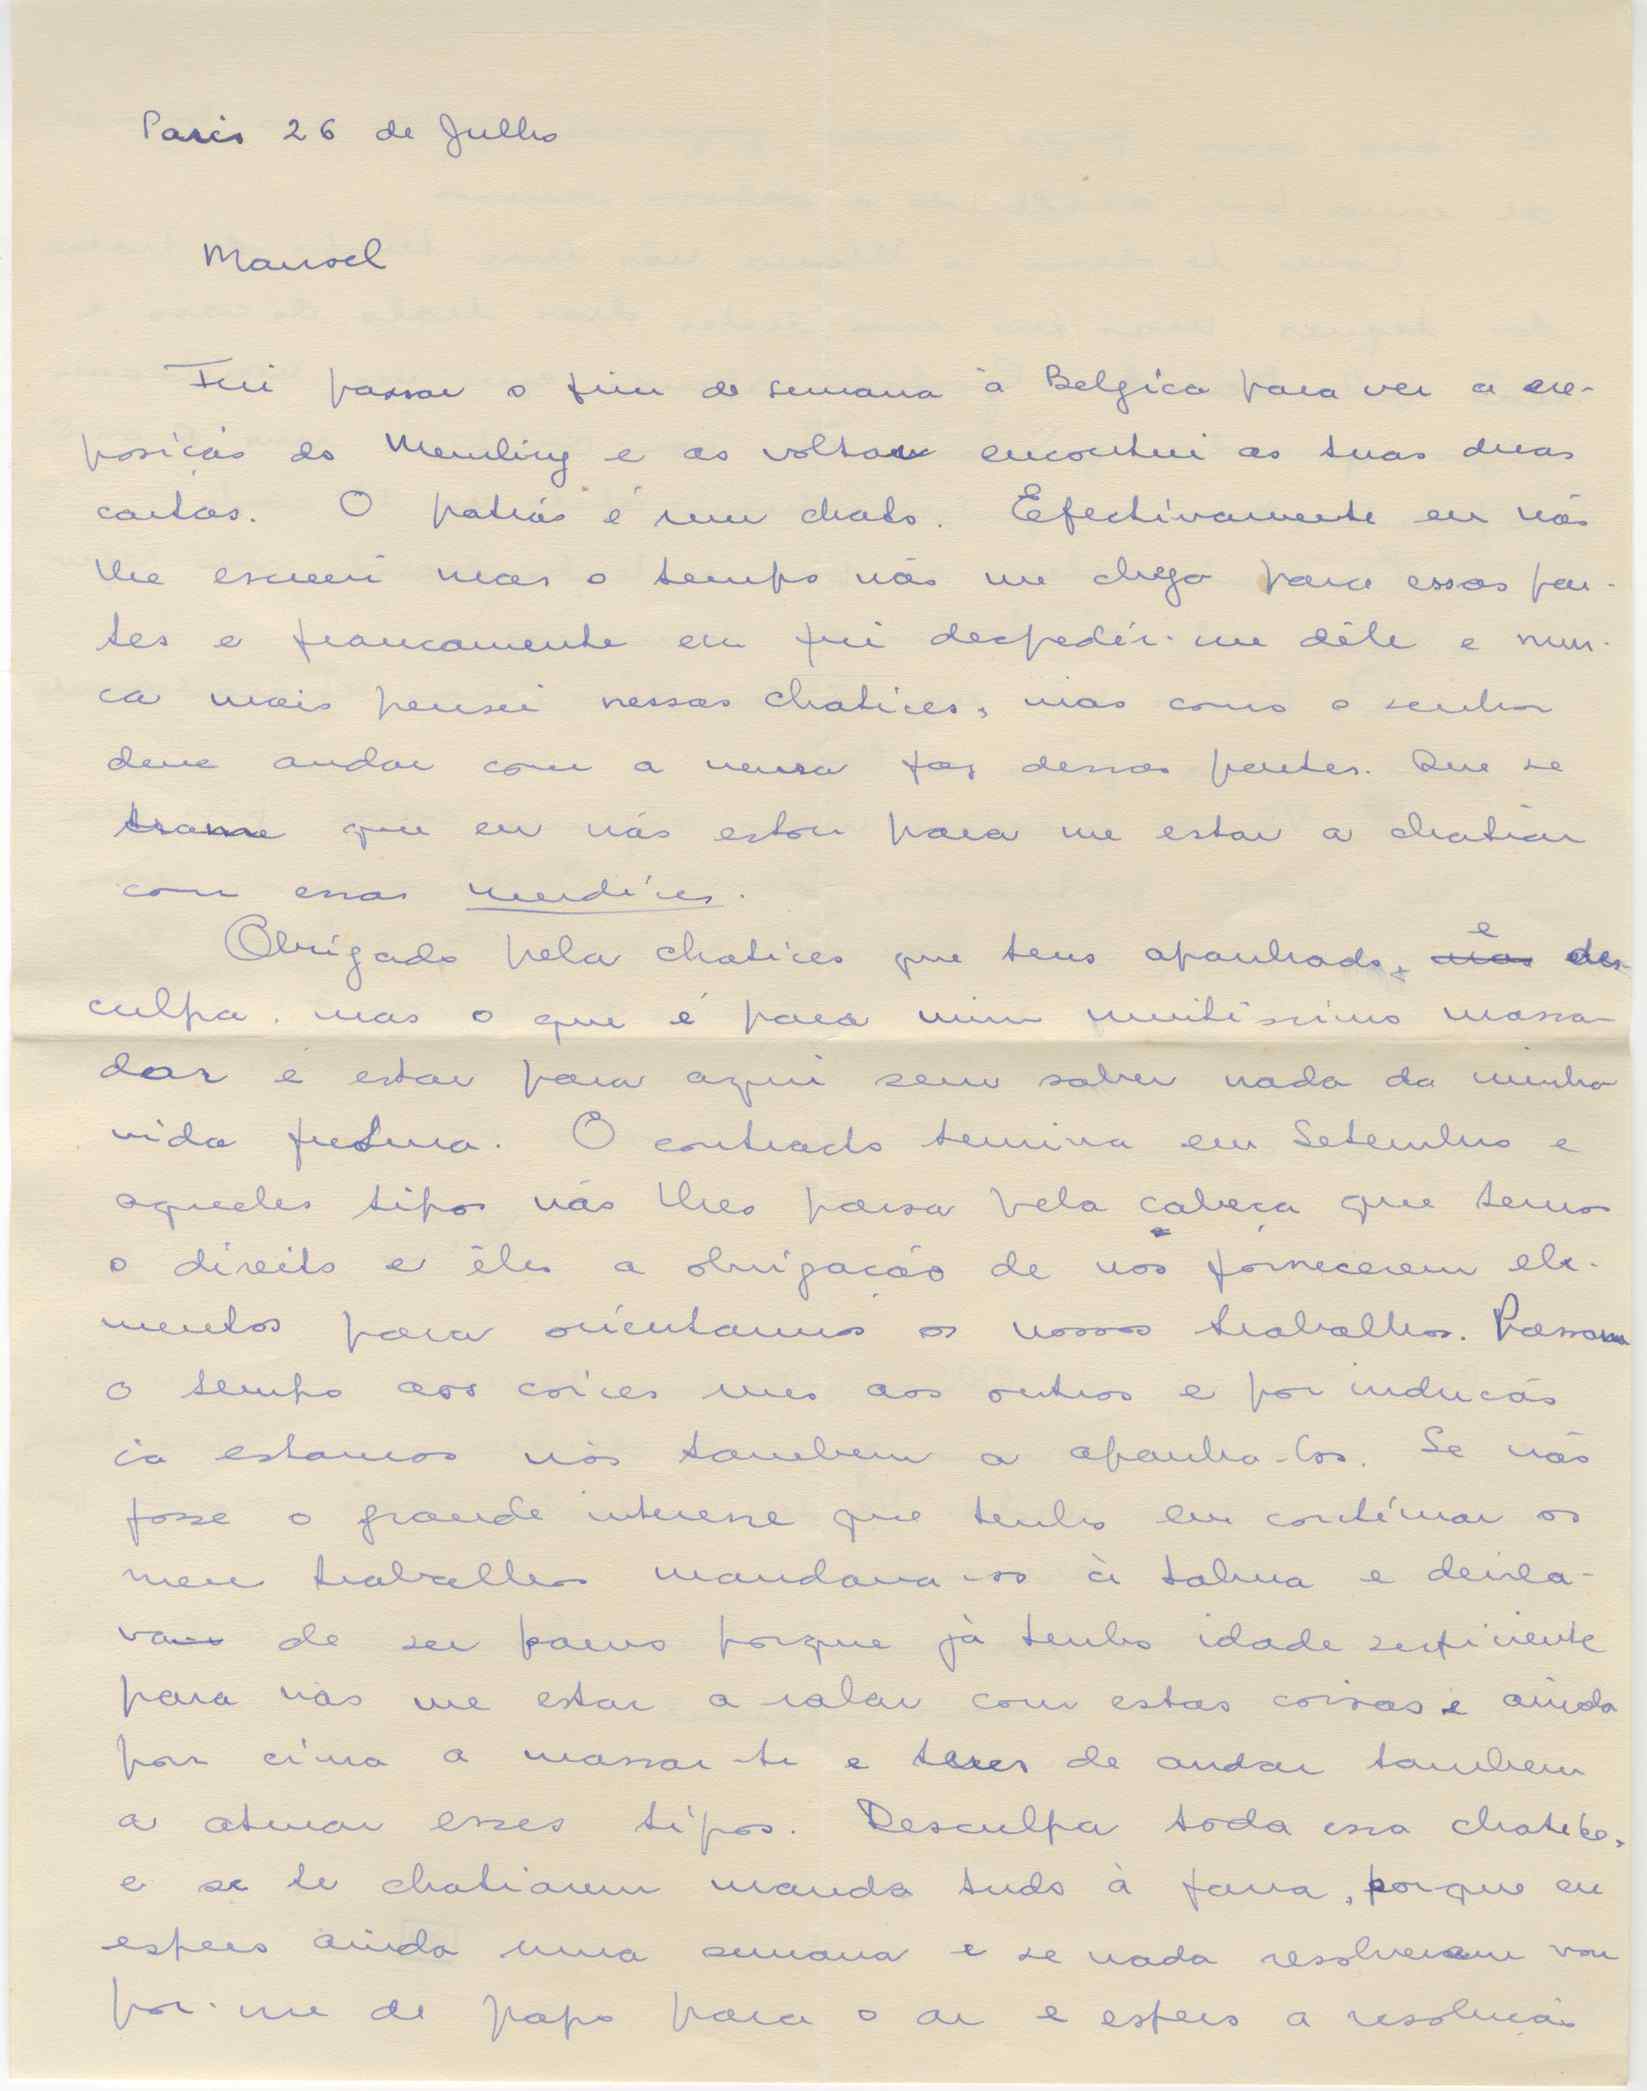 Paris 26 de Julho
Manoel
Fui passar o fim de semana à Belgica para ver a ex-
posição do Memling e ao voltar encontrei as tuas duas
cartas. O patrão é um chato. Efectivamente eu não
lhe escrevi mas o tempo não me chega para essas par-
tes e francamente eu fui despedir-me dêle e nun-
ca mais pensei nessas chatices, mas como o senhor
deve andar com a neura faz dessas partes. Que se
trame que eu não estou para me estar a chatiar
com essas merdices.
Obrigado pela chatices que tens apanhado, e des-
culpa. mas o que é para mim muitissimo massa-
dor é estar para aqui sem saber nada da minha
vida futura. O contracto termina em Setembro e
aqueles tipos não lhes passa pela cabeça que temos
o direito e êles a obrigação de nos fornecerem ele-
mentos para orientarmos os nossos trabalhos. Passam
o tempo aos coices uns aos outros e por indução
cá estamos nós tambem a apanha-los. Se não
fosse o grande interesse que tenho em continuar os
meus trabalhos mandava-os à tabua e deixa-
va de ser parvo porque já tenho idade suficiente
para não me estar a ralar com estas coisas e ainda
por cima a massar-te e teres de andar tambem
a aturar esses tipos. Desculpa toda essa chatice,
e se te chatiarem manda tudo à fava, porque eu
espero ainda uma semana e se nada resolverem vou
pôr-me de papo para o ar e espero a resolução